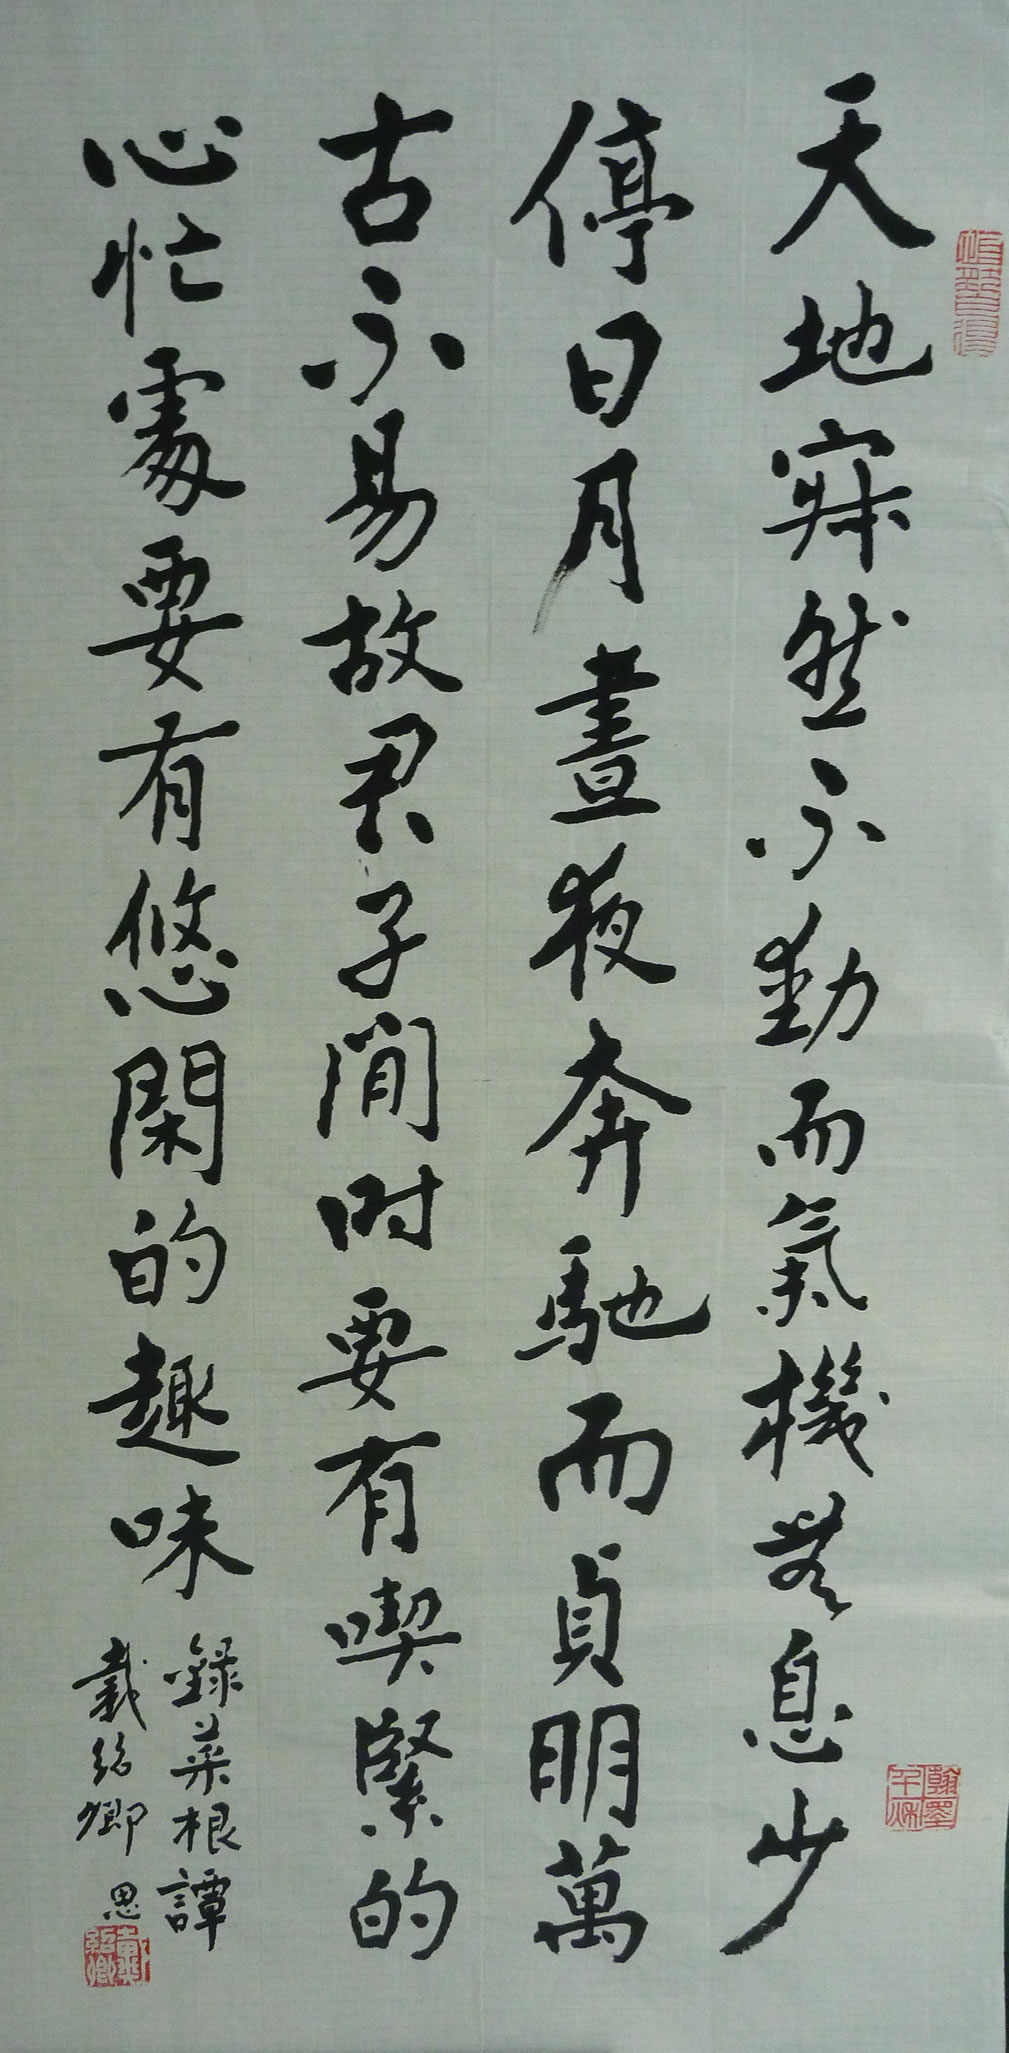 天地寂然不動而氣機無息少
停日月晝夜奔馳而貞明萬
古不易故君子閒時要有喫緊的
心忙處要有悠閑的趣味
錄菜根譚
戴紹卿
翰墨千秋
戴紹卿